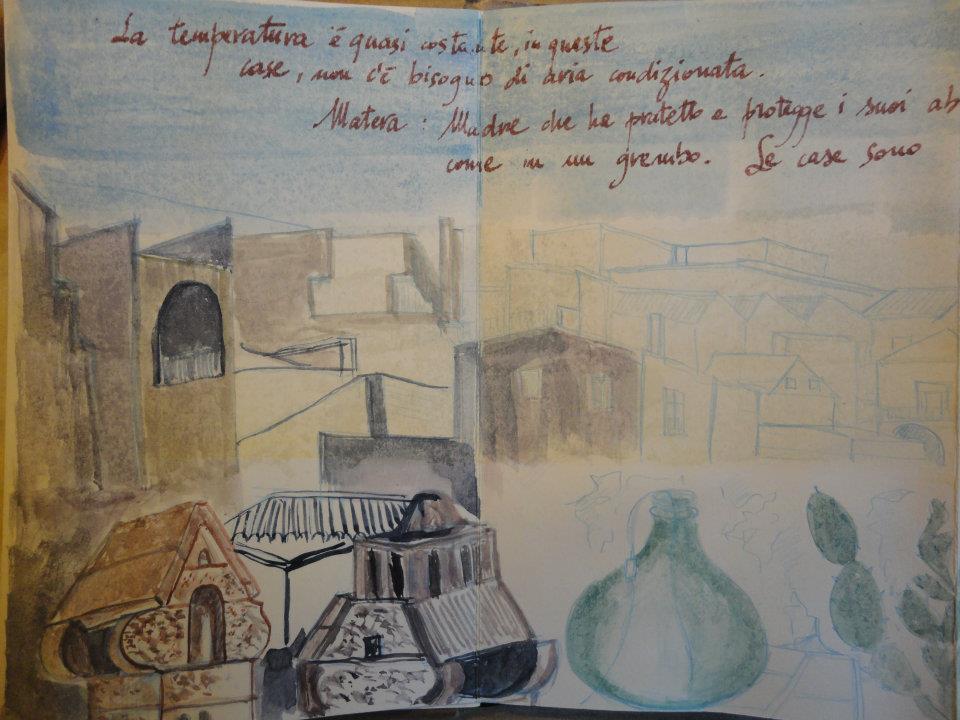 La temperatura è quasi costante, in queste
case, non c'è bisogno di aria condizionata.
Matera: Madre che ha protetto e protegge i suoi ab
come in un grembo. Le case sono